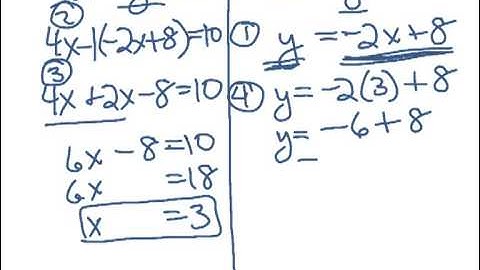 ②
4x-1(-2x+8)=10
③
4x+2x-8=10
6x-8=10
6x =18
x =3
① y = -2x+8
④ y=-2(3)+8
y= -6+8